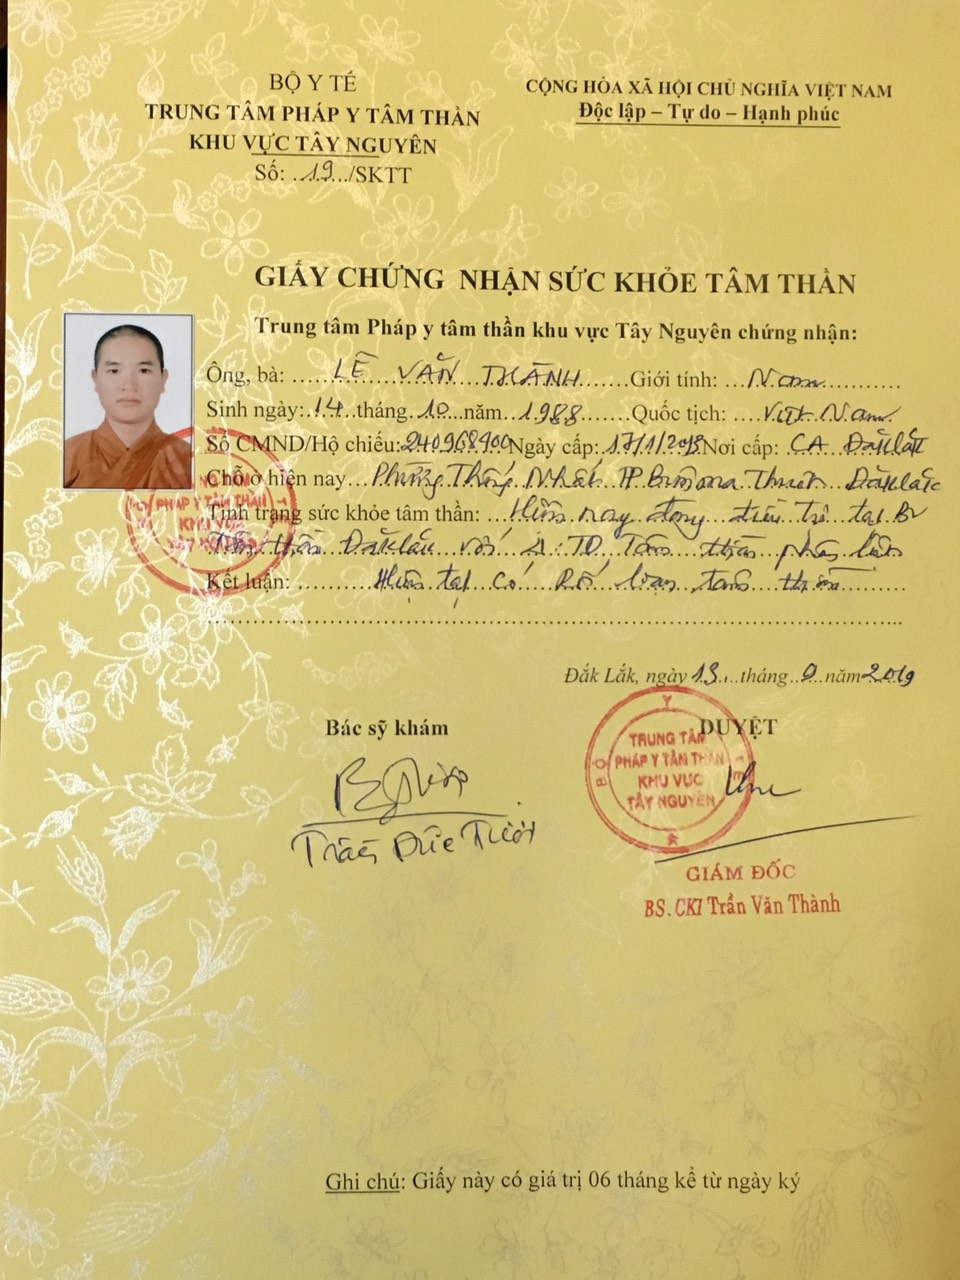 BỘ Y TẾ
TRUNG TÂM PHÁP Y TÂM THẦN
KHU VỰC TÂY NGUYÊN
Số: ..19../SKTT
CỘNG HÒA XÃ HỘI CHỦ NGHĨA VIỆT NAM
Độc lập – Tự do – Hạnh phúc
GIẤY CHỨNG NHẬN SỨC KHỎE TÂM THẦN
Trung tâm Pháp y tâm thần khu vực Tây Nguyên chứng nhận:
Ông, bà: LÊ VĂN THÀNH Giới tính: Nam
Sinh ngày: 14 tháng 10 năm 1988 Quốc tịch: Việt Nam
Số CMND/Hộ chiếu: 240968900 Ngày cấp: 17/1/2013 Nơi cấp: CA Đăklăk
Chỗ ở hiện nay Phường Thống Nhất TP Buôn Ma Thuột Đăklăk
Tình trạng sức khỏe tâm thần: Hiện nay đang điều trị tại BV
Tâm thần Đăklăk với TD Tâm thần phân liệt
Kết luận: Hiện tại có Rối loạn tâm thần
PHÁP Y TÂM THẦN
KHU VỰC
Đắk Lắk, ngày 13 tháng 9 năm 2019
Bác sỹ khám
DUYỆT
TRUNG TÂM
PHÁP Y TÂM THẦN
KHU VỰC
TÂY NGUYÊN
BỘ Y TẾ
Trần Đức
GIÁM ĐỐC
BS. CKI Trần Văn Thành
Ghi chú: Giấy này có giá trị 06 tháng kể từ ngày ký